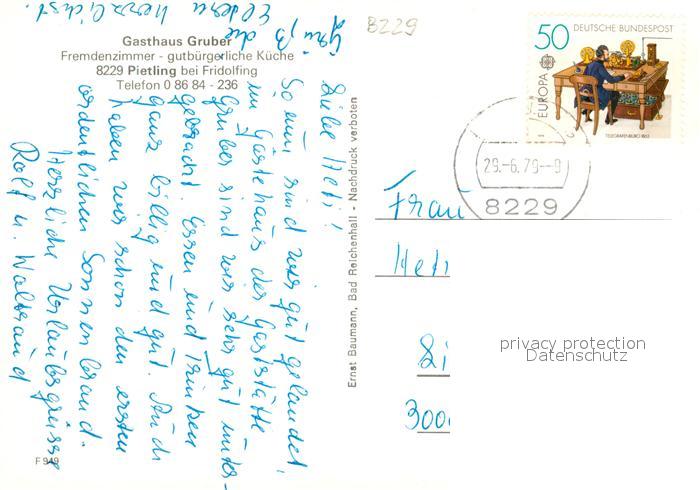 Gasthaus Gruber
Fremdenzimmer - gutbürgerliche Küche
8229 Pietling bei Fridolfing
Telefon 0 86 84 - 236
Liebe Heti!
So nun sind wir gut gelandet
im Gästehaus der Gaststätte
Gruber sind wir sehr gut unter-
gebracht. Essen und Trinken
ganz billig und gut. Auch
haben wir schon den ersten
ordentlichen Sonnenbrand.
Herzliche Urlaubsgrüsse
Rolf u. Waltraud
Grüß die
Eltern herzlichst.
F 949
Ernst Baumann, Bad Reichenhall - Nachdruck verboten
8229
50 DEUTSCHE BUNDESPOST
EUROPA
TELEGRAFENBÜRO 1863
29.-6.79--9
8229
Frau
Heti
privacy protection
Datenschutz
Li
300